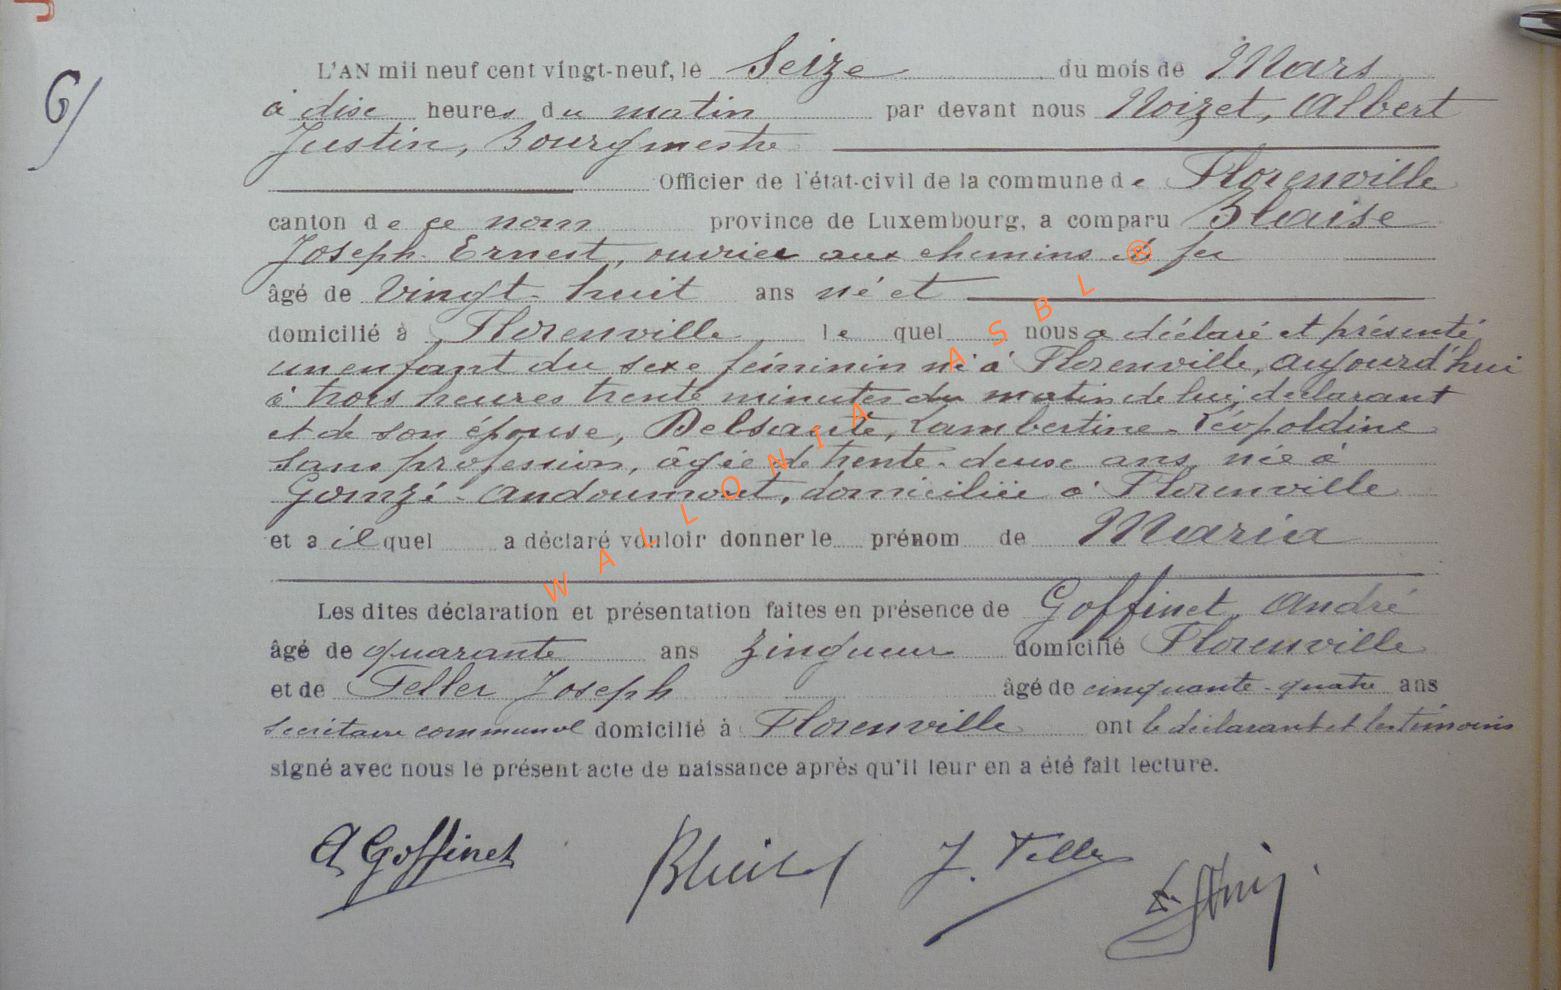 6/
L'AN mil neuf cent vingt-neuf, le Seize du mois de Mars
à dix heures du matin par devant nous Noizet, Albert
Justin, Bourgmestre
Officier de l'état-civil de la commune de Florenville
canton de ce nom province de Luxembourg, a comparu Blaise
Joseph-Ernest, ouvrier aux chemins de fer
âgé de Vingt-huit ans né et
domicilié à Florenville lequel nous a déclaré et présenté
un enfant du sexe féminin né à Florenville, aujourd'hui
à trois heures trente minutes du matin de lui, déclarant
et de son épouse, Delsauté, Lambertine-Léopoldine
sans profession, âgée de trente-deux ans, née à
Gomzé-Andoumont, domiciliée à Florenville
et a il quel a déclaré vouloir donner le prénom de Maria
Les dites déclaration et présentation faites en présence de Goffinet, André
âgé de quarante ans Zingueur domicilié Florenville
et de Feller Joseph âgé de cinquante-quatre ans
secrétaire communal domicilié à Florenville ont le déclarant et les témoins
signé avec nous le présent acte de naissance après qu'il leur en a été fait lecture.
A Goffinet J. Feller
WALLONIA ASBL ®